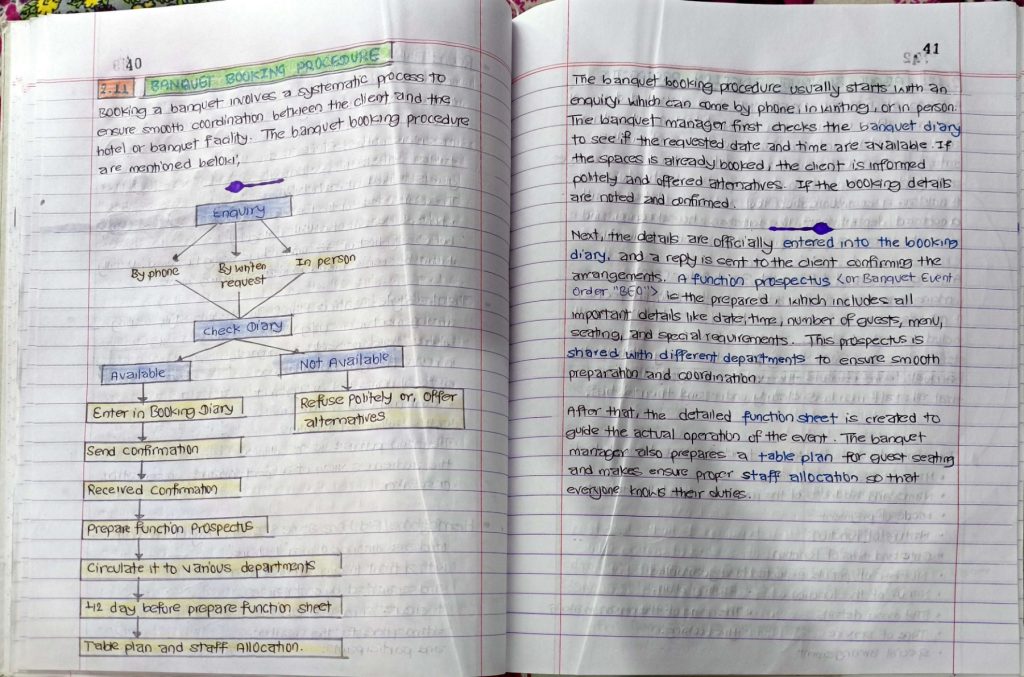 40
2.11 BANQUET BOOKING PROCEDURE
Booking a banquet involves a systematic process to
ensure smooth coordination between the client and the
hotel or banquet facility. The banquet booking procedure
are mentioned below;
Enquiry
By phone
By written
request
In person
Check Diary
Available
Not Available
Enter in Booking Diary
Refuse Politely or, offer
alternatives
Send confirmation
Received Confirmation
Prepare function Prospectus
Circulate it to various departments
day before prepare function sheet
Table plan and staff Allocation.
41
The banquet booking procedure usually starts with an
enquiry which can come by phone, in writing, or in person.
The banquet manager first checks the banquet diary
to see if the requested date and time are available. If
the spaces is already booked, the client is informed
politely and offered alternatives. If the booking details
are noted and confirmed.
Next, the details are officially entered into the booking
diary, and a reply is sent to the client confirming the
arrangements. A function prospectus <or Banquet Event
Order "BEO"> is the prepared, which includes all
important details like date, time, number of guests, menu,
seating, and special requirements. This prospectus is
shared with different departments to ensure smooth
preparation and coordination.
After that, the detailed function sheet is created to
guide the actual operation of the event. The banquet
manager also prepares a table plan for guest seating
and makes ensure proper staff allocation so that
everyone knows their duties.